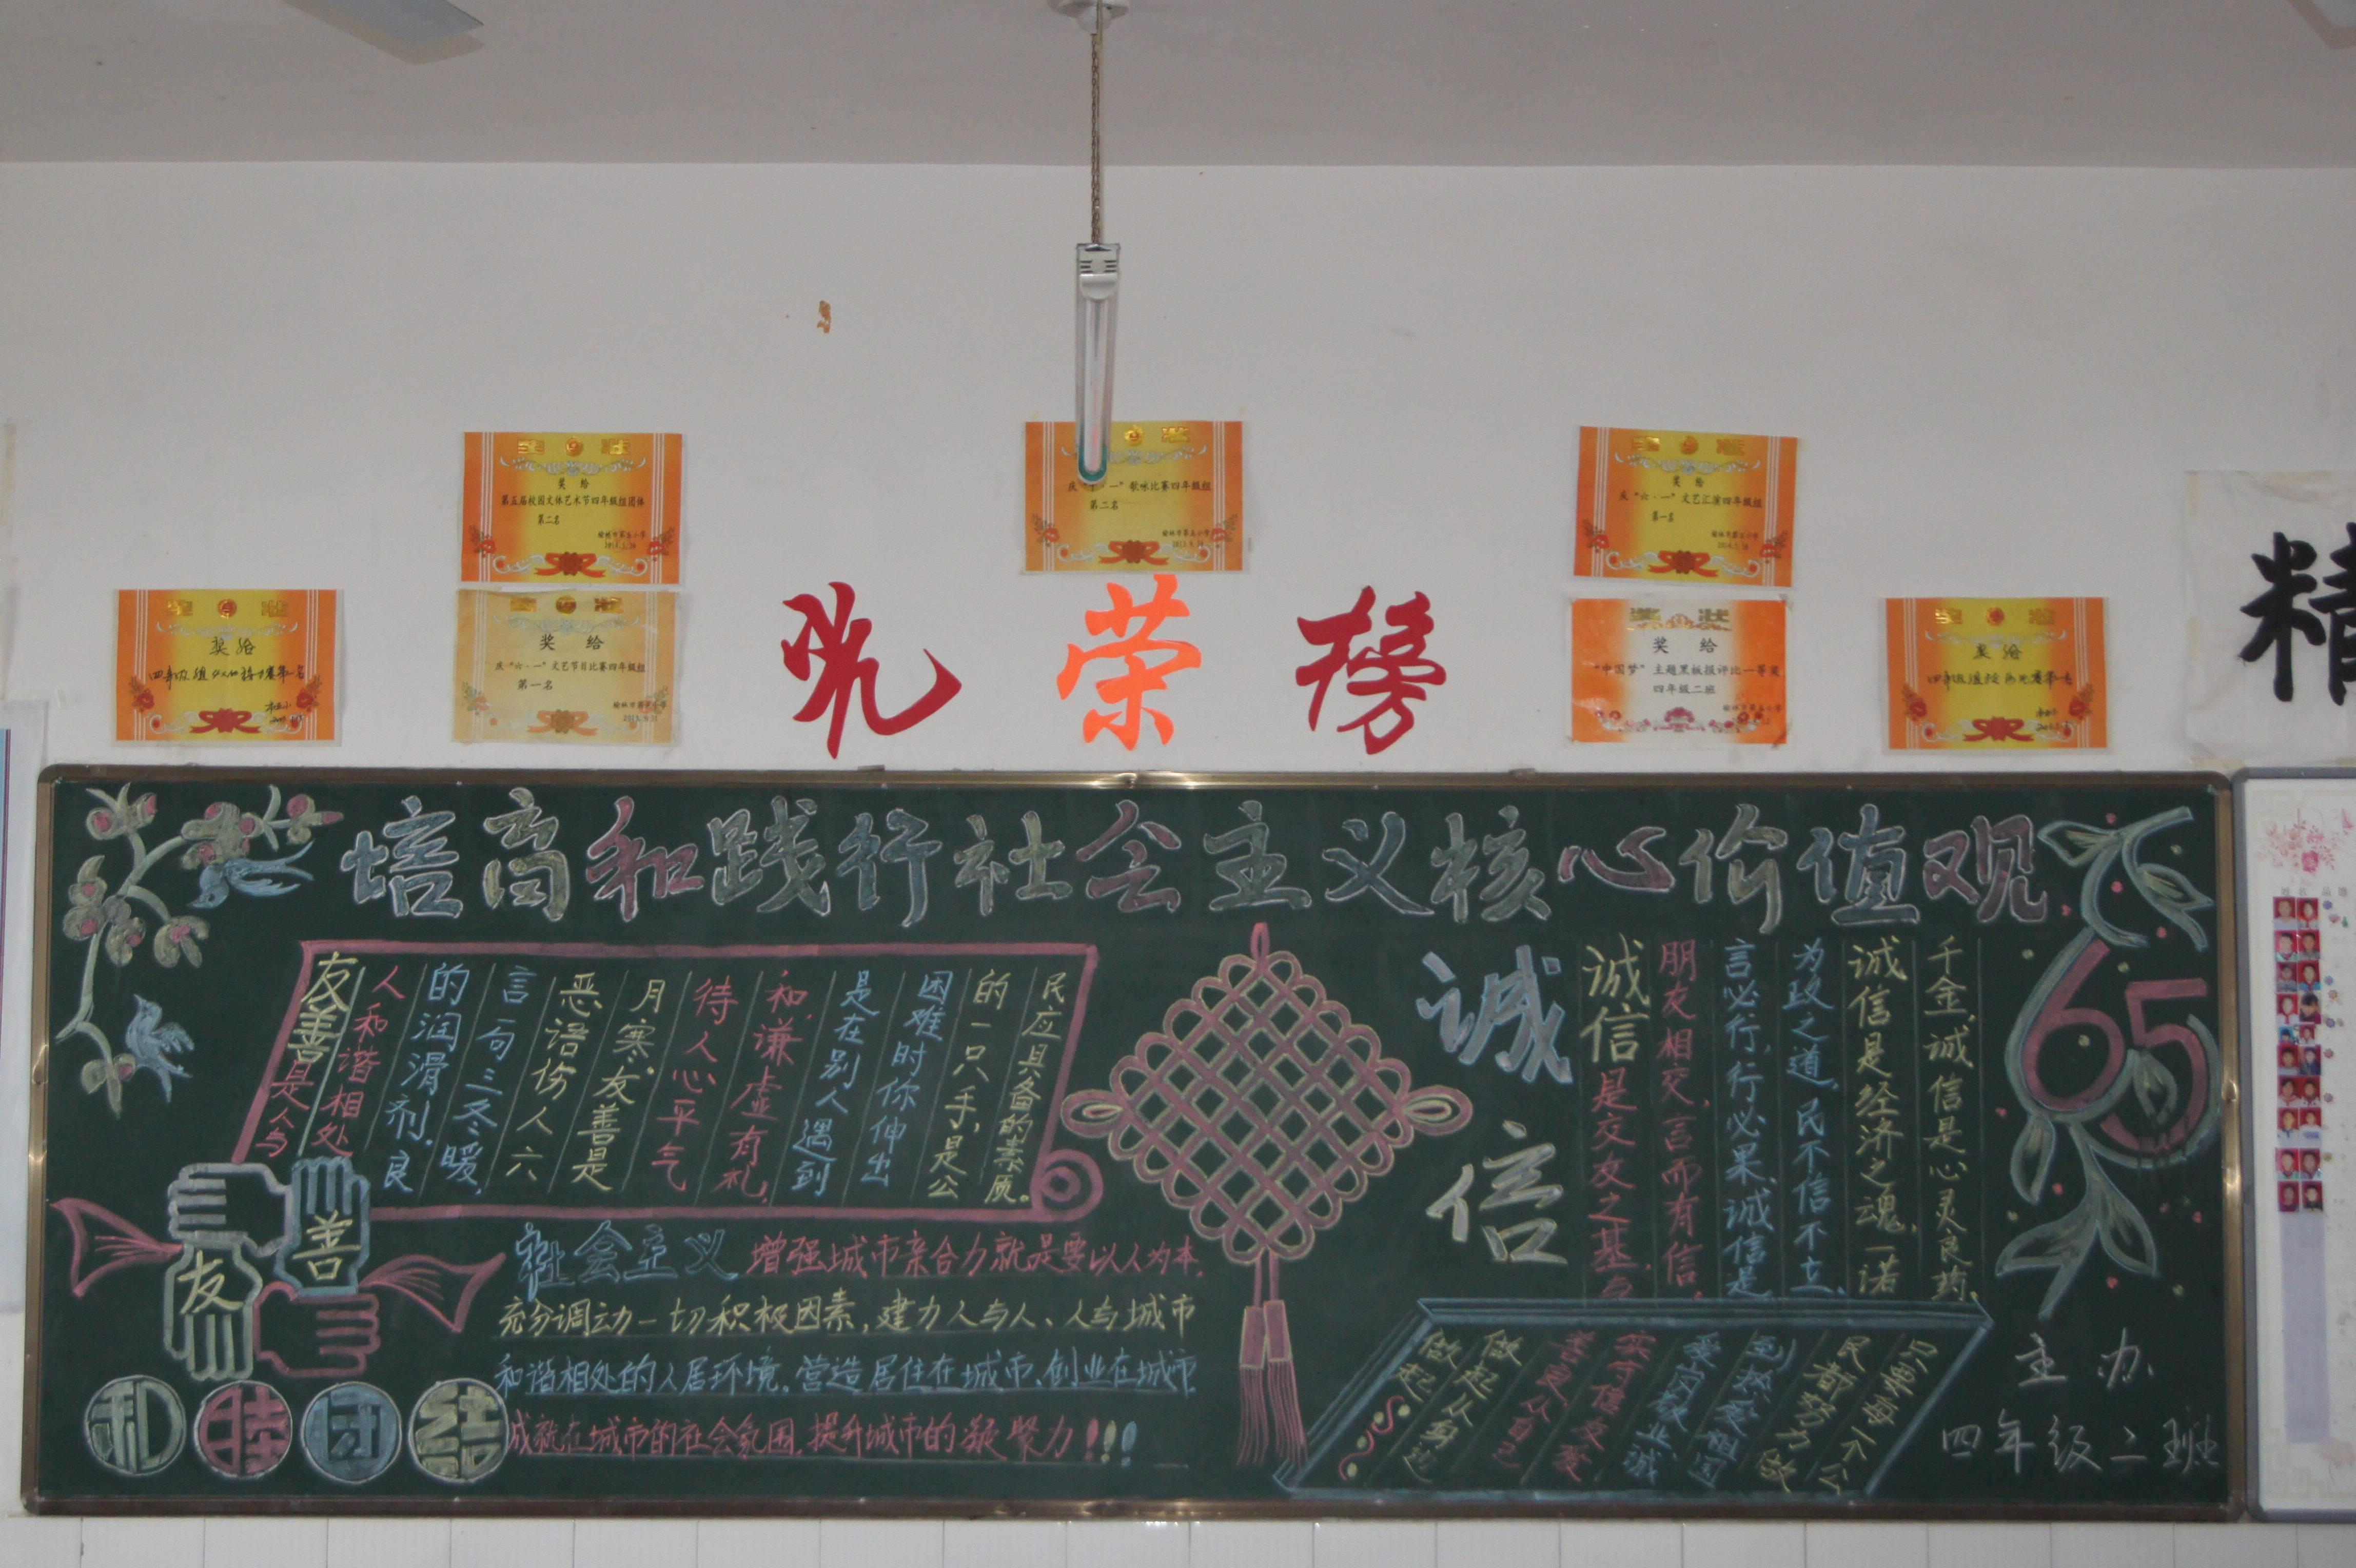 奖状
奖给
第五届校园文体艺术节四年级组团体
第二名
榆林市第五小学
庆“六·一”歌咏比赛四年级组
第二名
榆林市第五小学
奖状
奖给
庆“六·一”文艺汇演四年级组
第一名
榆林市第五小学
奖状
奖给
奖状
奖给
庆“六·一”文艺节目比赛四年级组
第一名
榆林市第五小学
光荣榜
奖状
奖给
“中国梦”主题黑板报评比一等奖
四年级二班
榆林市第五小学
奖状
奖给
精
培育和践行社会主义核心价值观
友善是人与
人和谐相处
的润滑剂.良
言一句三冬暖,
恶语伤人六
月寒.友善是
待人心平气
和,谦虚有礼,
是在别人遇到
困难时你伸出
的一只手,是公
民应具备的素质。
友善
和睦团结
社会主义 增强城市亲合力就是要以人为本,
充分调动一切积极因素,建力人与人、人与城市
和谐相处的人居环境.营造居住在城市、创业在城市
成就在城市的社会氛围.提升城市的凝聚力!!!
诚信
诚信是交友之基.与
朋友相交,言而有信,
言必行,行必果.诚信是
为政之道,民不信不立.
诚信是经济之魂,一诺
千金.诚信是心灵良药.
只要每一个公
民都努力做
到热爱祖国
爱岗敬业诚
实守信友爱
善良从自己
做起从身边
做起
65
主办
四年级二班
姓名